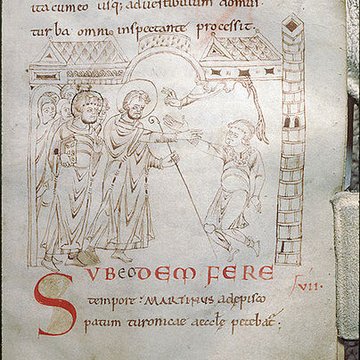 ita cum eo usq; ad uestibulum domus
turba omni inspectante processit.
SVB eODEM FERE
tempore MARTINUS adepisco
patum turonicae aeccle petebat.
VII.